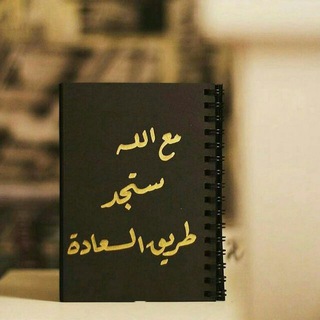 مع الله
ستجد
طريق السعادة